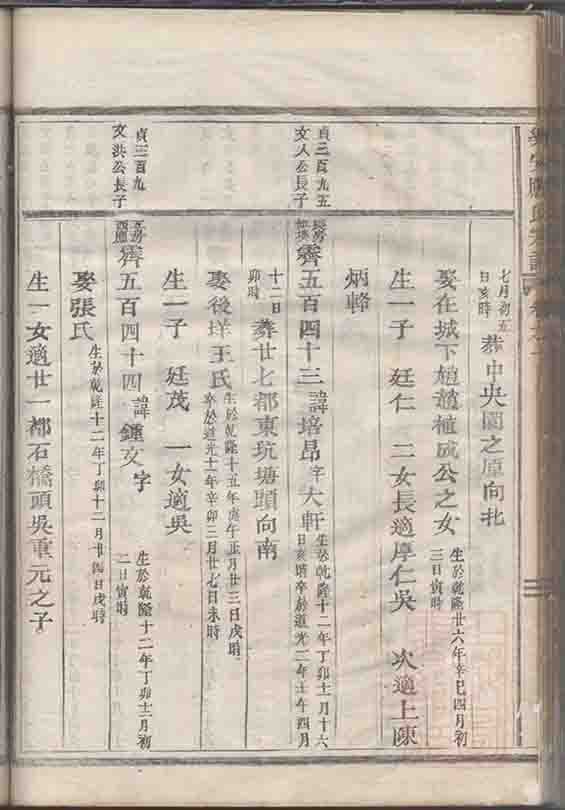 七月初五
日亥時
葬中央園之原向北
娶在城下趙趙植成公之女
生於乾隆廿六年辛巳四月初
三日寅時
生一子 廷仁 二女長適厚仁吳 次適上陳
炳蜂
貞三百九五
文人公長子
霽五百四十三 諱培昂字大軒
生於乾隆十二年丁卯十一月十六
日亥時卒於道光二年壬午四月
十二日
卯時
葬廿七都東坑塘頭向南
娶後垟王氏
生於乾隆十五年庚午正月廿三日戌時
卒於道光十一年辛卯三月廿七日未時
生一子 廷茂 一女適吳
貞三百九
文洪公長子
霽五百四十四 諱鍾文字
生於乾隆十二年丁卯十二月初
二日寅時
娶張氏
生於乾隆十二年丁卯十二月廿四日戌時
生一女適廿一都石橋頭吳重元之子